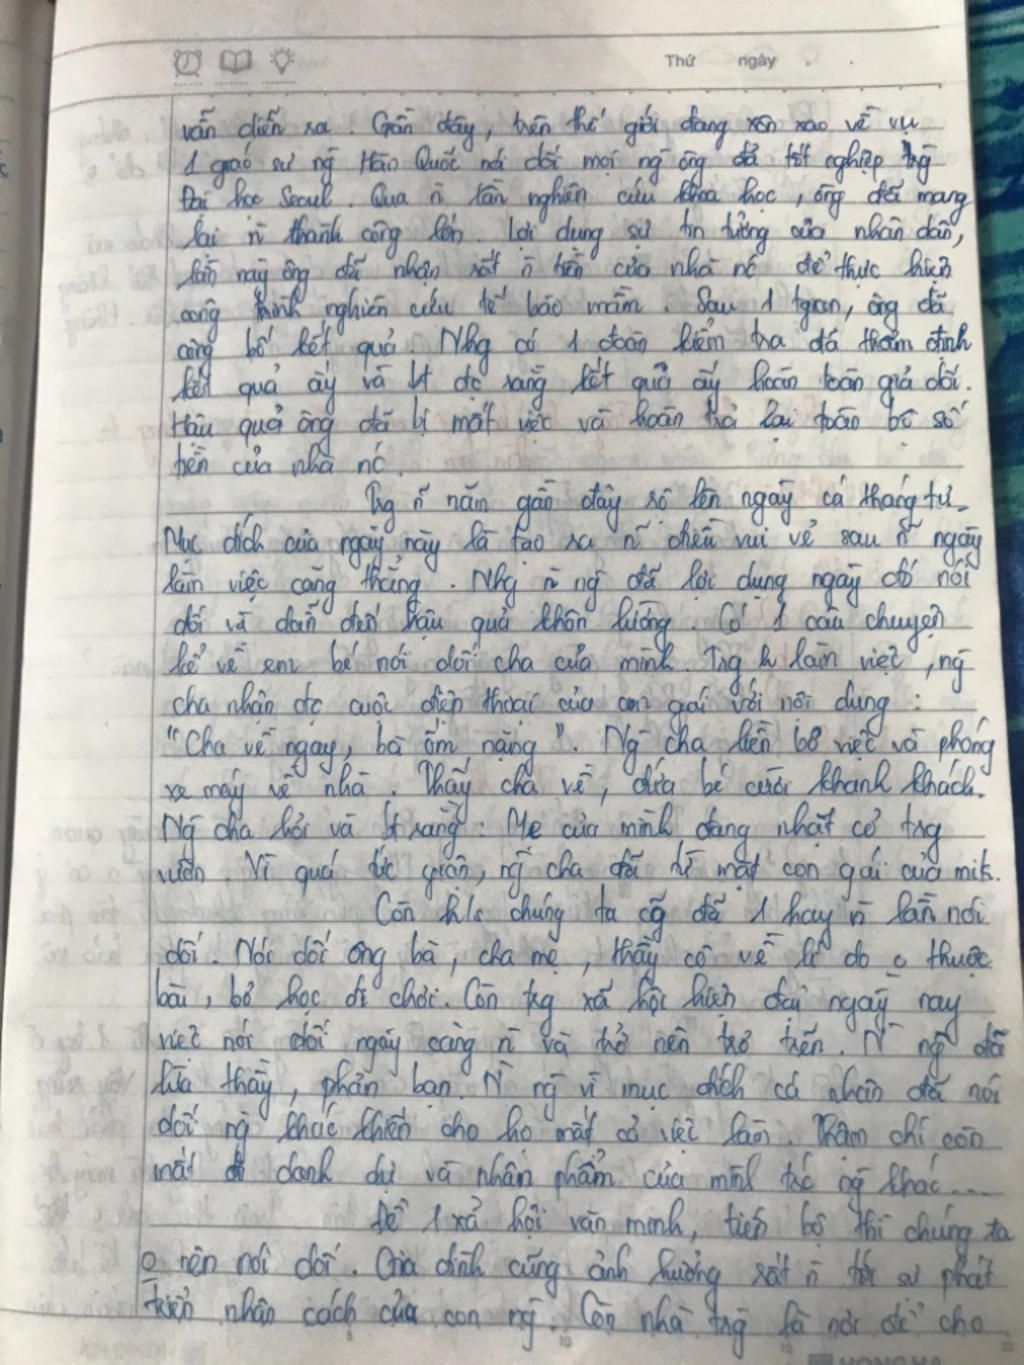 Thứ ngày
vẫn diễn ra. Gần đây, trên thế giới đang xôn xao về vụ
1 giáo sư ng Hàn Quốc nói dối mọi ng ông đã tốt nghiệp trg
Đại học Seoul. Qua n̄ lần nghiên cứu khoa học, ông đã mang
lại n̄ thành công lớn. Lợi dụng sự tin tưởng của nhân dân,
lần này ông đã nhận rất n̄ tiền của nhà nc để thực hiện
công trình nghiên cứu tế bào mầm. Sau 1 tgian, ông đã
công bố kết quả. Nhg có 1 đoàn kiểm tra đã thẩm định
kết quả ấy và bt đc rằng kết quả ấy hoàn toàn giả dối.
Hậu quả ông đã bị mất việc và hoàn trả lại toàn bộ số
tiền của nhà nc.
Trg n̄ năm gần đây rộ lên ngày cá tháng tư.
Mục đích của ngày này là tạo ra n̄ điều vui vẻ sau n̄ ngày
làm việc căng thẳng. Nhg n̄ ng đã lợi dụng ngày đó nói
dối và dẫn đến hậu quả khôn lường. Có 1 câu chuyện
kể về em bé nói dối cha của mình. Trg k làm việc, ng
cha nhận đc cuộc điện thoại của con gái với nội dung:
"Cha về ngay, bà ốm nặng". Ng cha liền bỏ việc và phóng
xe máy về nhà. Thấy cha về, đứa bé cười khanh khách.
Ng cha hỏi và bt rằng: Mẹ của mình đang nhặt cỏ trg
vườn. Vì quá tức giận, ng cha đã từ mặt con gái của mik.
Còn h/s chúng ta cg đã 1 hay n̄ lần nói
dối. Nói dối ông bà, cha mẹ, thầy cô về lí do o thuộc
bài, bỏ học đi chơi. Còn trg xã hội hiện đại ngày nay
việc nói dối ngày càng n̄ và trở nên trơ trẽn. N̄ ng đã
lừa thầy, phản bạn. N̄ ng vì mục đích cá nhân đã nói
dối ng khác khiến cho họ mất cả việc làm. Thậm chí còn
mất đi danh dự và nhân phẩm của mình trc ng khác....
Để 1 xã hội văn minh, tiến bộ thì chúng ta
o nên nói dối. Gia đình cũng ảnh hưởng rất n̄ tới sự phát
triển nhân cách của con ng. Còn nhà trg là nơi để cho
HONG HA